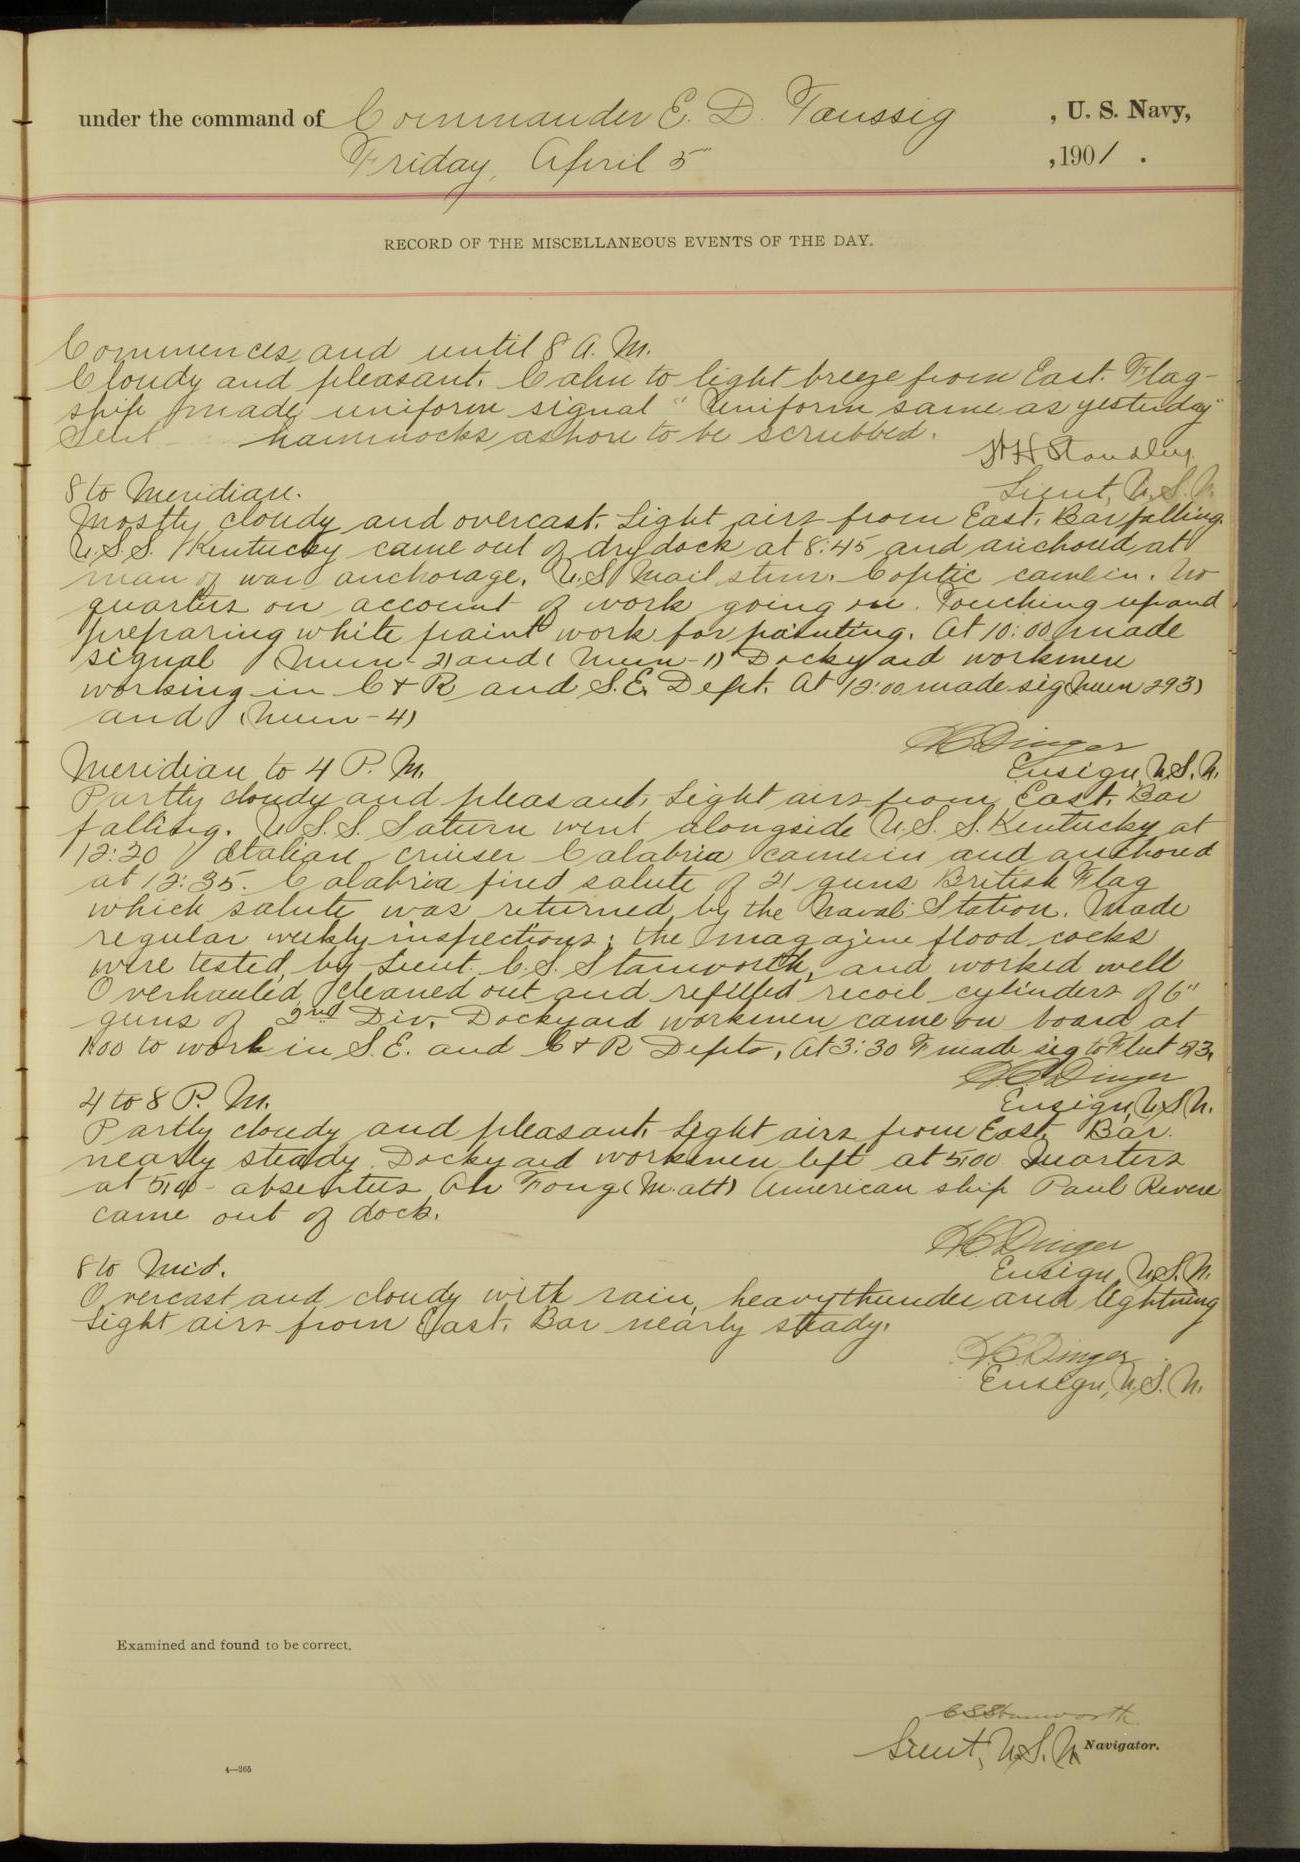 under the command of Commander E. D. Taussig, U. S. Navy,
Friday, April 5", 1901.
RECORD OF THE MISCELLANEOUS EVENTS OF THE DAY.
Commences and until 8 A. M.
Cloudy and pleasant. Calm to light breeze from East. Flag-
ship made uniform signal "Uniform same as yesterday"
Sent hammocks ashore to be scrubbed.
WH Standley
Lieut, U.S.N.
8 to Meridian.
Mostly cloudy and overcast. Light airs from East. Bar falling.
U.S.S. Kentucky came out of dry dock at 8:45 and anchored at
man of war anchorage. U.S. Mail stmr. Coptic came in. No
quarters on account of work going on. Touching up and
preparing white paint work for painting. At 10:00 made
signal (Num-21 and (Num-1) Dockyard workmen
working in C & R and S.E. Dept. At 12:00 made sig (Num 293)
and (Num-4)
HC Dinger
Ensign, U.S.N.
Meridian to 4 P. M.
Partly cloudy and pleasant. Light airs from East. Bar
falling. U.S.S. Saturn went alongside U.S.S. Kentucky at
12:20 Italian cruiser Calabria came in and anchored
at 12:35. Calabria fired salute of 21 guns British Flag
which salute was returned by the Naval Station. Made
regular weekly inspections; the magazine flood cocks
were tested by Lieut. C.S. Stanworth, and worked well
Overhauled, cleaned out and refilled recoil cylinders of 6"
guns of 2nd Div. Dockyard workmen came on board at
1:00 to work in S.E. and C & R Depts. At 3:30 F made sig to Flut
HC Dinger
Ensign, U.S.N.
4 to 8 P. M.
Partly cloudy and pleasant. Light airs from East. Bar.
nearly steady. Dockyard workmen left at 5:00 Quarters
at absentees Ah Fong (M. att) American ship Paul Revere
came out of dock.
HC Dinger
Ensign, U.S.N.
8 to Mid.
Overcast and cloudy with rain, heavy thunder and lightning
Light airs from East. Bar nearly steady.
HC Dinger
Ensign, U.S.N.
Examined and found to be correct.
CS Stanworth
Lieut, U.S.N. Navigator.
4—265